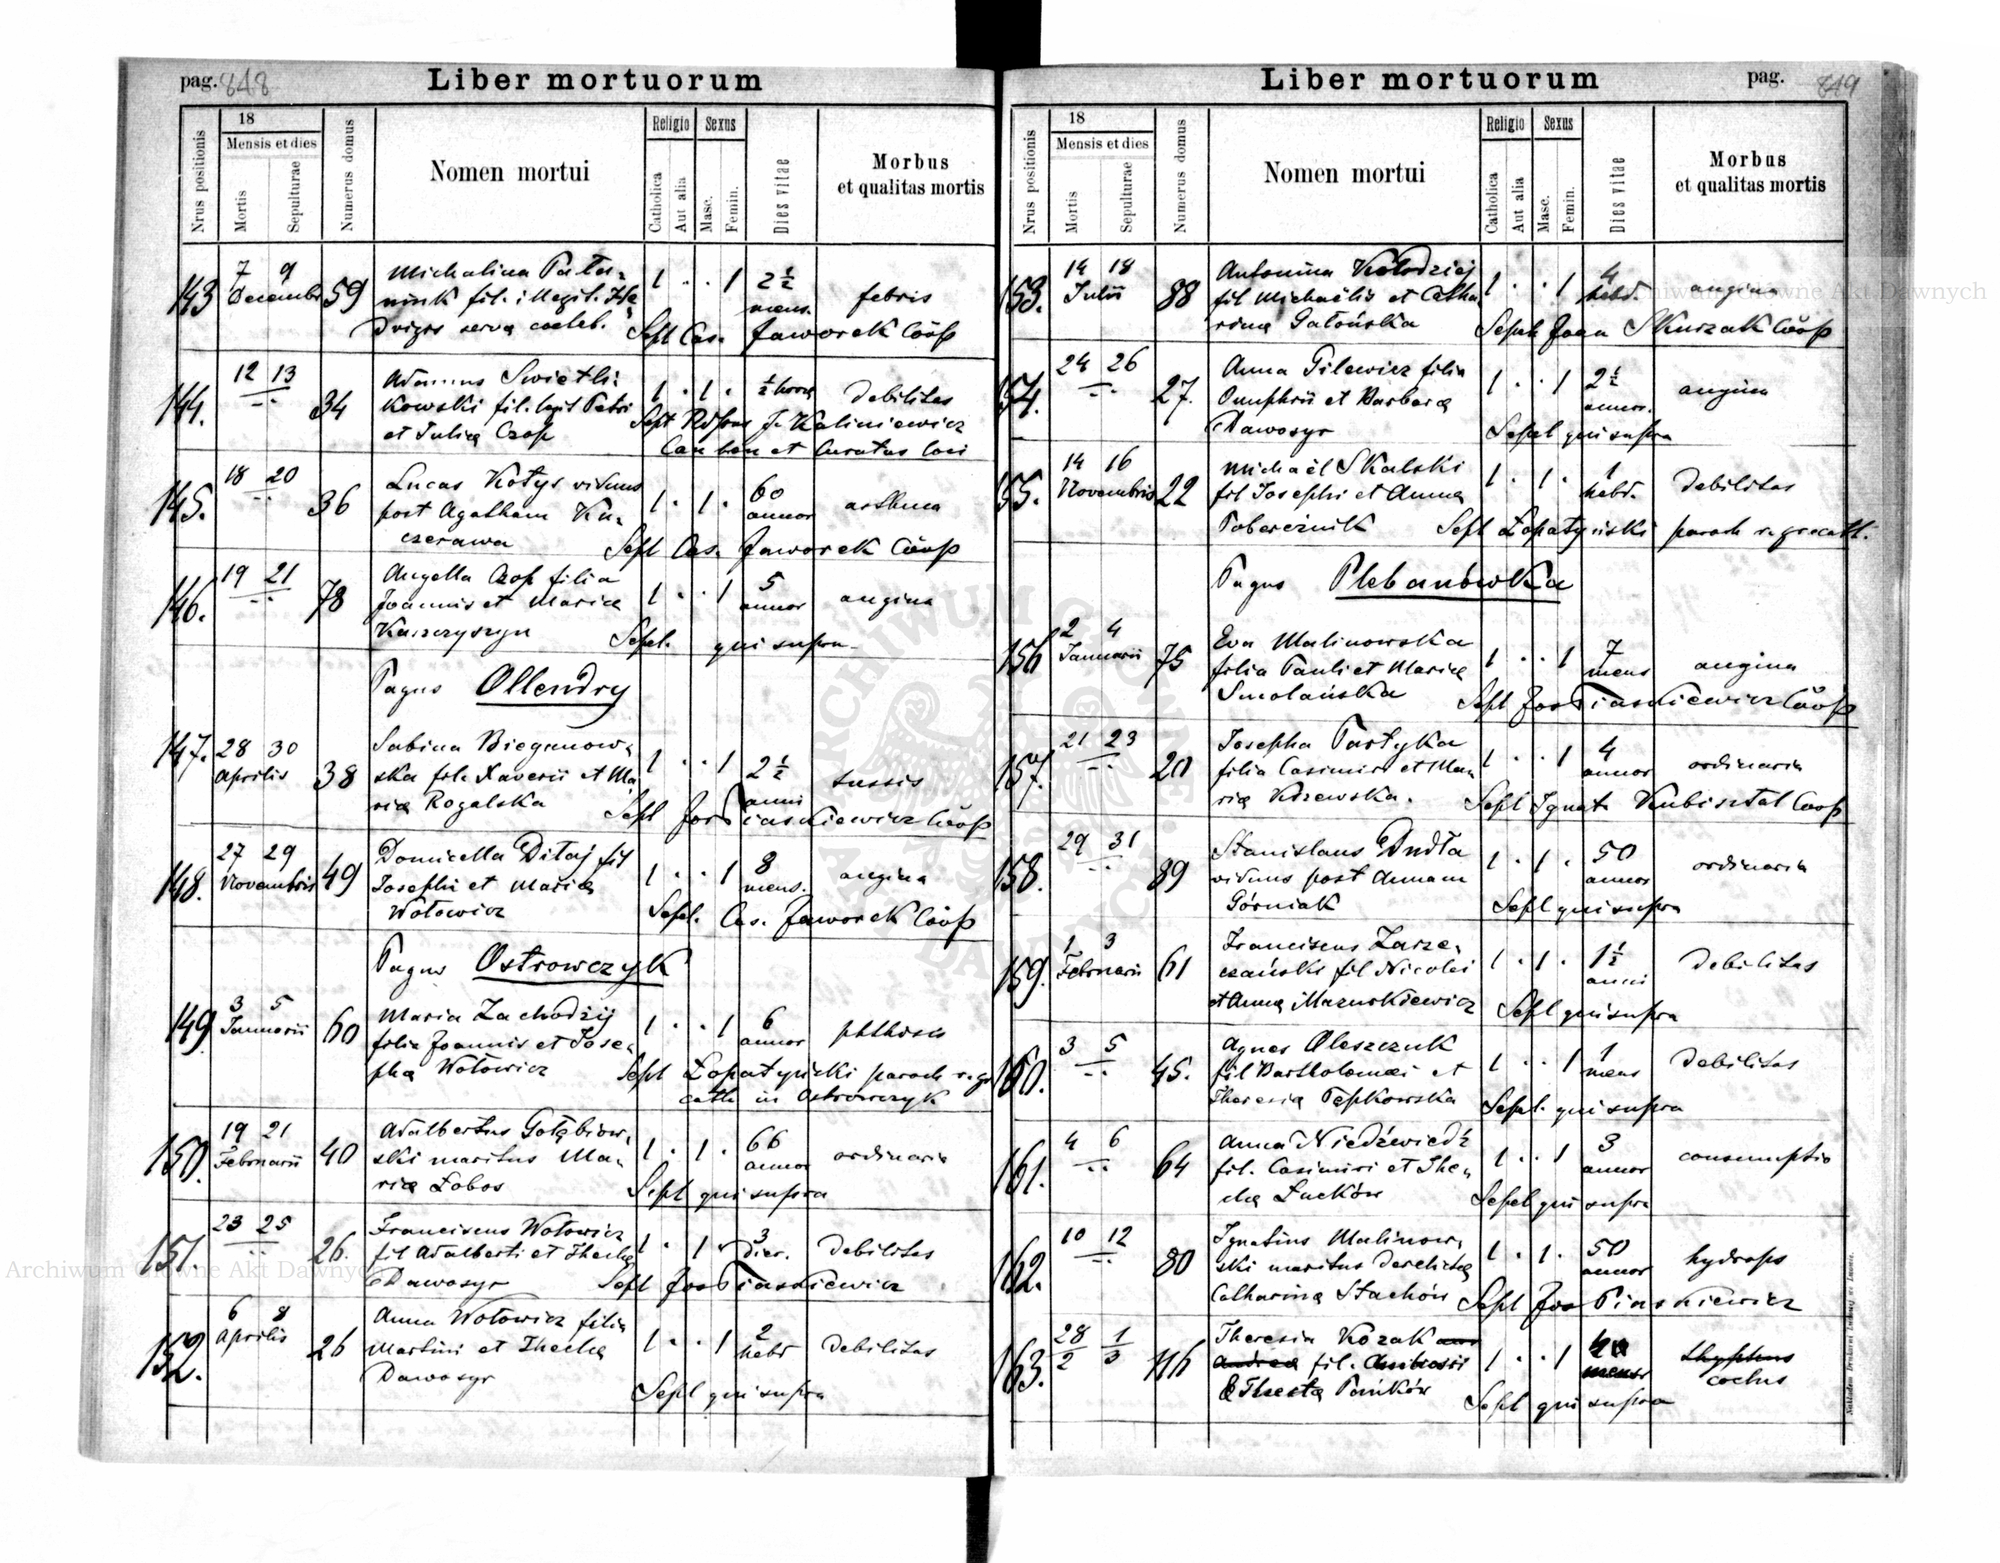 pag. 848
Liber mortuorum
Nrus positionis
18
Mensis et dies
Mortis
Sepulturae
Numerus domus
Nomen mortui
Religio
Catholica
Aut alia
Sexus
Masc.
Femin.
Dies vitae
Morbus
et qualitas mortis
143 7 9 Decembr 59 Michalina Pata-
niuk fil. illegit. He-
dvigis serva coeleb.
1 . . 1 2 ½ mens. febris
Sept Cas. Jaworek Coop
144. 12 13 34 Adamus Swietli-
kowski fil. legit Petri
et Julia Czop
1 . 1 . ½ hora debilitas
Sept Rdssmus J. Kaliniewicz
Can hon et Curatus loci
145. 18 20 36 Lucas Kotys viduus
post Agatham Ku-
czerawa
1 . 1 . 60 annor asthma
Sept Cas. Jaworek Coop
146. 19 21 78 Angella Czop filia
Joannis et Maria
Kuszczyszyn
1 . . 1 5 annor angina
Sepel. qui supra
Pagus Ollendry
147. 28 30 Aprilis 38 Sabina Biegunow-
ska fil. Xaverii et Ma-
ria Rogalska
1 . . 1 2 ½ anni tussis
Sept Jos Piaskiewicz Coop
148. 27 29 Novembris 49 Domicella Ditaj fil
Josephi et Maria
Wołowicz
1 . . 1 8 mens. angina
Sepel. Cas. Jaworek Coop
Pagus Ostrowczyk
149 3 5 Januarii 60 Maria Zachodzij
filia Joannis et Jose-
pha Wołowicz
1 . . 1 6 annor phthisis
Sept Łopatyński paroch r. gr
cath in Ostrowczyk
150. 19 21 Februarii 40 Adalbertus Gołąbiow-
ski maritus Ma-
ria Łobos
1 . 1 . 66 annor ordinaria
Sepl qui supra
151. 23 25 26. Franciscus Wołowicz
fil Adalberti et Thecla
Dawosyr
1 . 1 . 3 dier. debilitas
Sepl Jos Piaskiewicz
152. 6 8 Aprilis 26 Anna Wołowicz filia
Martini et Thecla
Dawosyr
1 . . 1 2 hebd debilitas
Sepl qui supra
Liber mortuorum
pag. 849
Nrus positionis
18
Mensis et dies
Mortis
Sepulturae
Numerus domus
Nomen mortui
Religio
Catholica
Aut alia
Sexus
Masc.
Femin.
Dies vitae
Morbus
et qualitas mortis
153. 14 18 Julii 88 Antonina Kołodziej
fil Michaelis et Catha
rina Gatońska
1 . . 1 4 hebd. angina
Sepult Joan Skurzak Coop
154. 24 26 27. Anna Gilewicz filia
Onuphrii et Barbara
Dawosyr
1 . . 1 2 ½ annor. angina
Sepel qui supra
155. 14 16 Novembris 22 Michaël Skalski
fil Josephi et Anna
Pobereżnik
1 . 1 . 1 hebd. debilitas
Sepl Łopatyński paroch r. gr cath.
Pagus Plebanówka
156 2 4 Januarii 75 Eva Malinowska
filia Pauli et Maria
Smolańska
1 . . 1 7 mens angina
Sepl Jos Piaskiewicz Coop
157. 21 23 20 Josepha Partyka
filia Casimiri et Ma-
ria Kizewska.
1 . . 1 4 annor ordinaria
Sepl Ignatz Kubisztal Coop
158. 29 31 89 Stanislaus Dudła
viduus post Annam
Górniak
1 . 1 . 50 annor ordinaria
Sepl qui supra
159. 1 3 Februarii 61 Franciscus Zarze-
czański fil Nicolai
et Anna Mazurkiewicz
1 . 1 . 1 ½ anni debilitas
Sepl qui supra
160. 3 5 45. Agnes Oleszczuk
fil Bartholomaei et
Theresia Tępkowska
1 . . 1 1 mens debilitas
Sepel. qui supra
161. 4 6 64 Anna Niedźwiedź
fil. Casimiri et The-
cla Łuków
1 . . 1 3 annor consumptio
Sepel qui supra
162. 10 12 80 Ignatius Malinow-
ski maritus derelicta
Catharina Stachów
1 . 1 . 50 annor hydrops
Sepl Jos Piaskiewicz
163. 28/2 1/3 116 Theresia Kozak
Andrea fil. Ambrosii
& Thecla Pańków
1 . . 1 mensr thyphus
coctus
Sepl qui supra
Nakładem Drukarni Ludowej we Lwowie.
Archiwum Główne Akt Dawnych
Archiwum Główne Akt Dawnych
ARCHIWUM GŁÓWNE AKT DAWNYCH